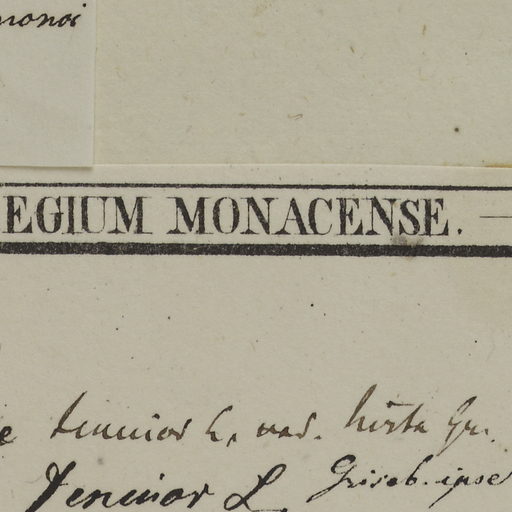 EGIUM MONACENSE.
tenuior L. var. hirta Gr.
Tenuior L. Griseb. ipse